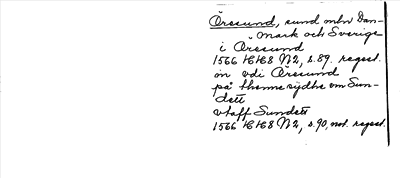 Öresund, sund mln Dan-
mark och Sverige
i Øresund
1566 HH8 N2, s.89. regest.
on vdi Øresund
på thenne sydhe om Sun-
dett
vtaff Sundett
1566 HH8 N2, s.90, not. regest.